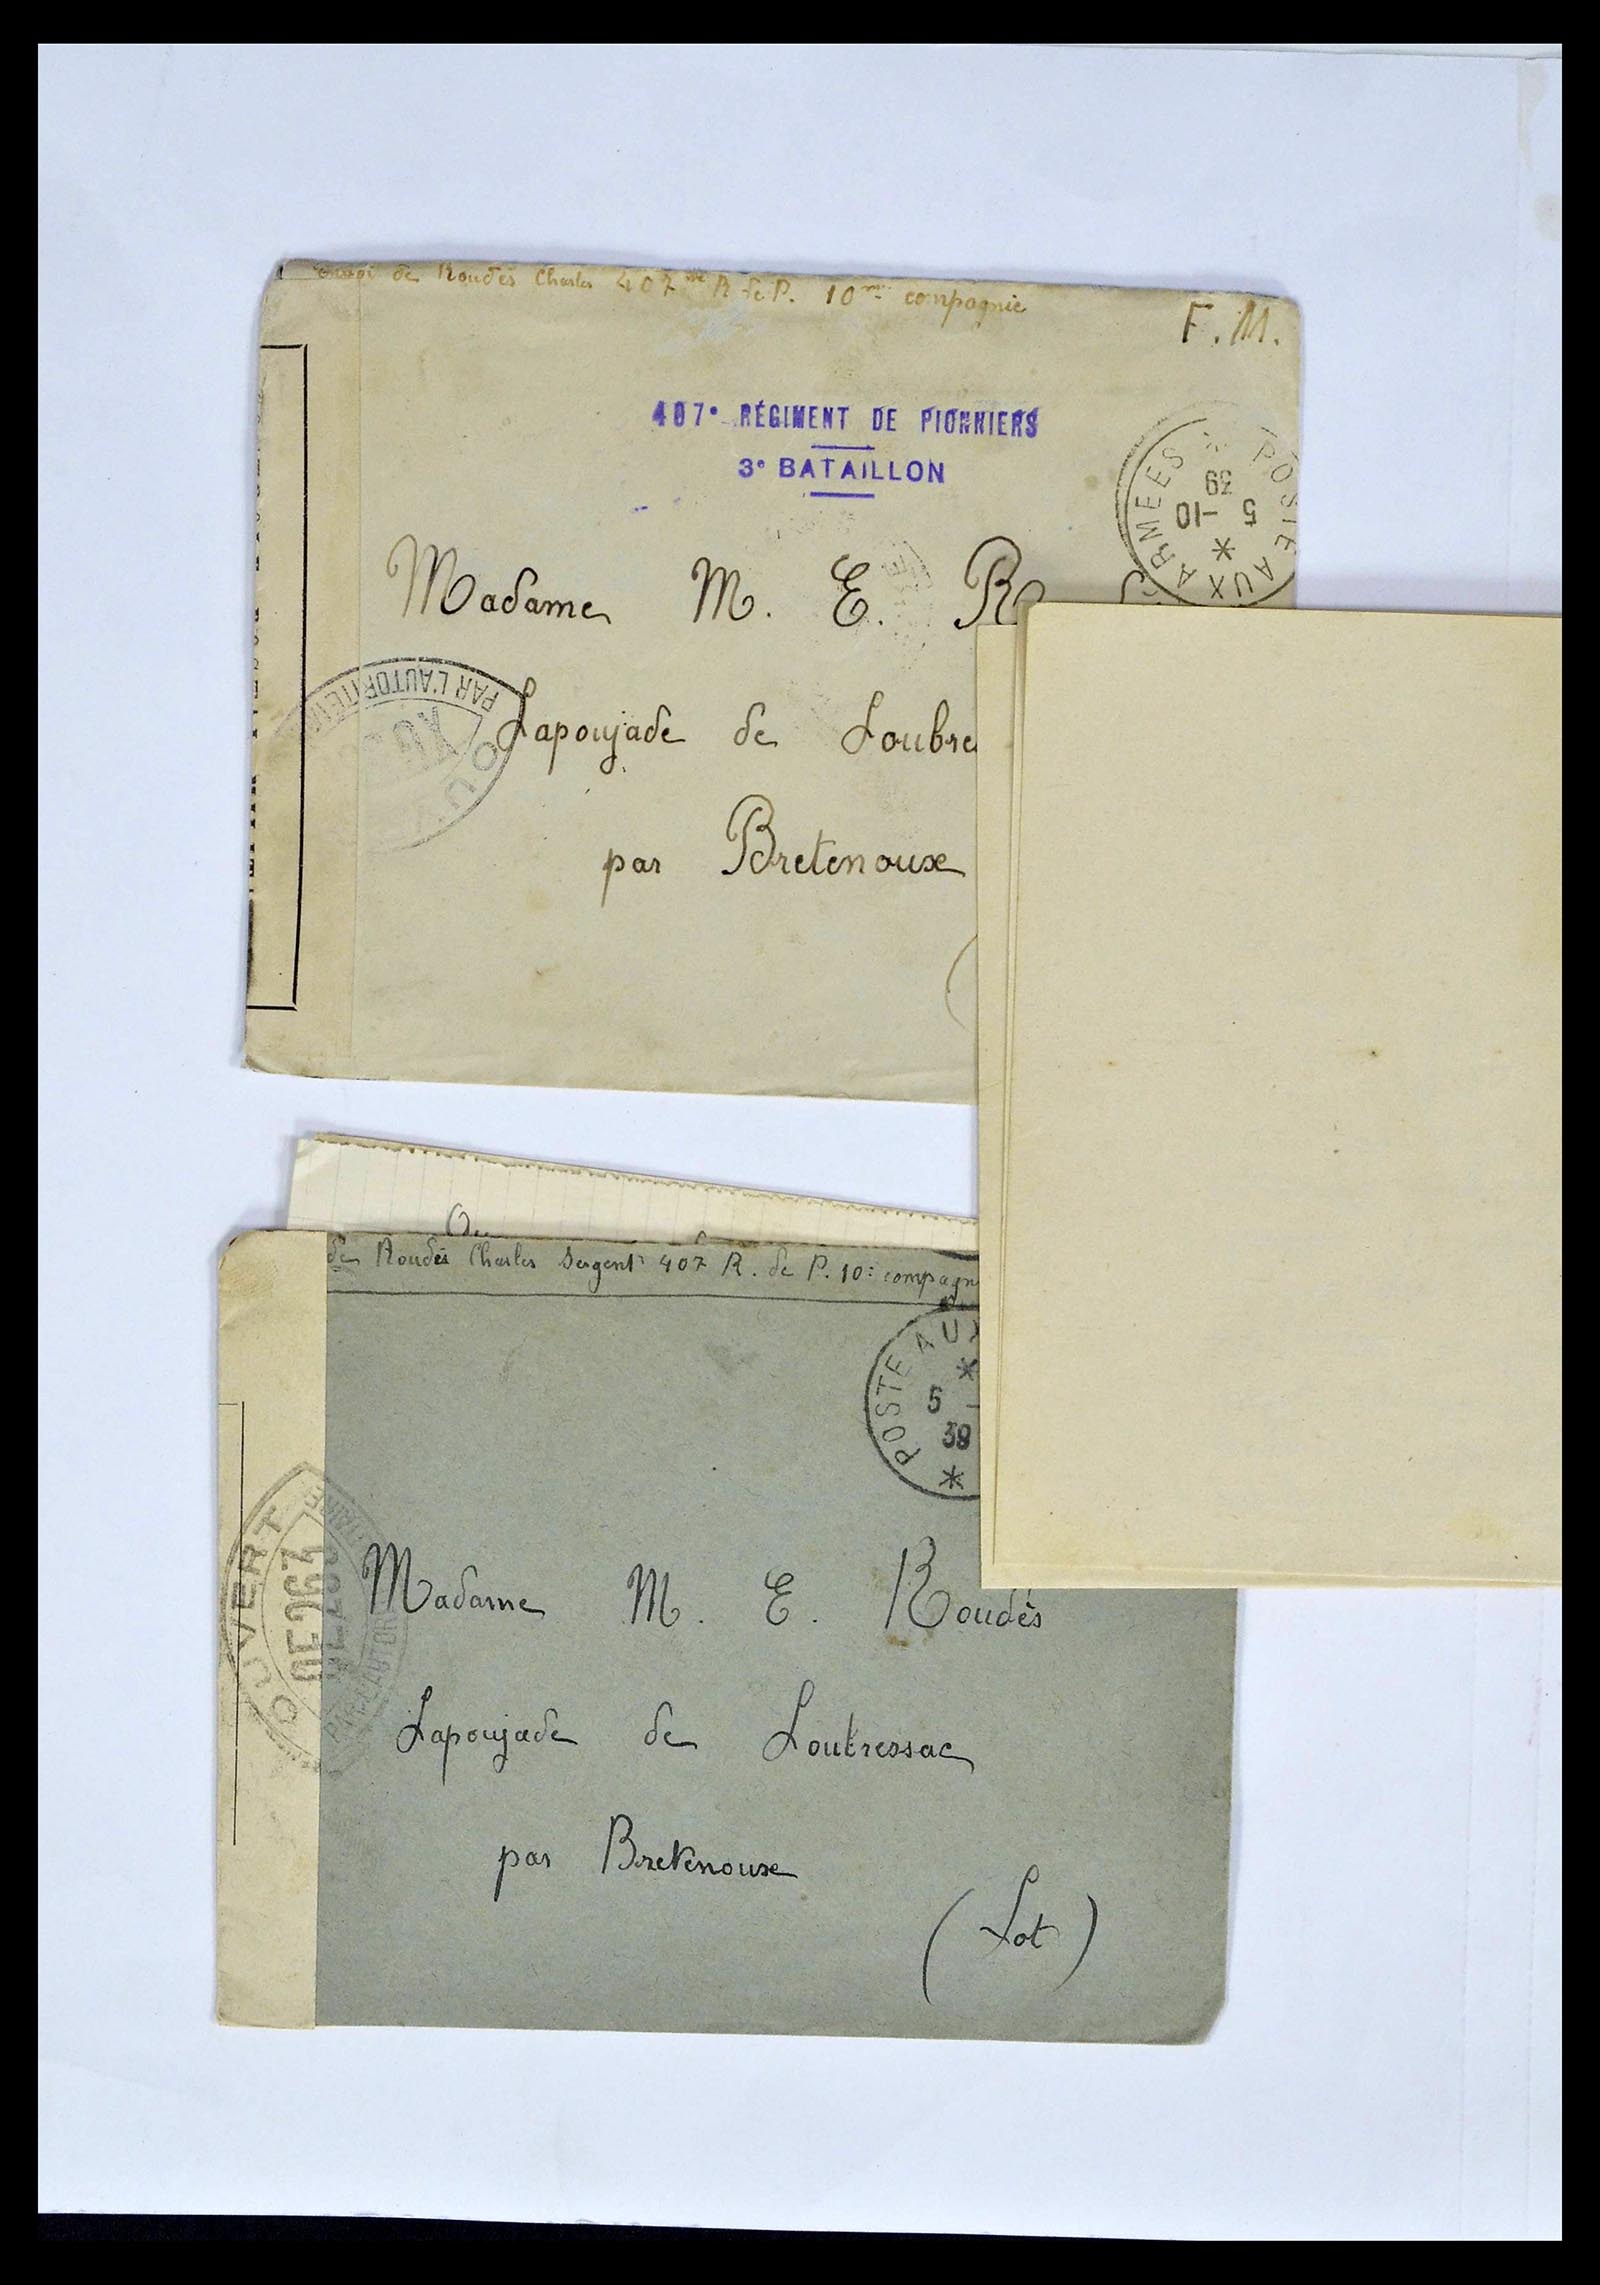 envoi de Roudès Charles 407me R de P. 10me compagnie
F. M.
407e RÉGIMENT DE PIONNIERS
3e BATAILLON
POSTE AUX ARMEES
5 -10
39
Madame M. E.
PAR L'AUTORITE
OUV
Lapoujade de Loubre
par Bretenoux
(
de Roudès Charles Sergent 407 R. de P. 10e compagn
POSTE AUX
5 -
39
OUVERT
PAR L'AUTORI
Madame M. E. Roudès
Lapoujade de Loubressac
par Bretenoux
(Lot)